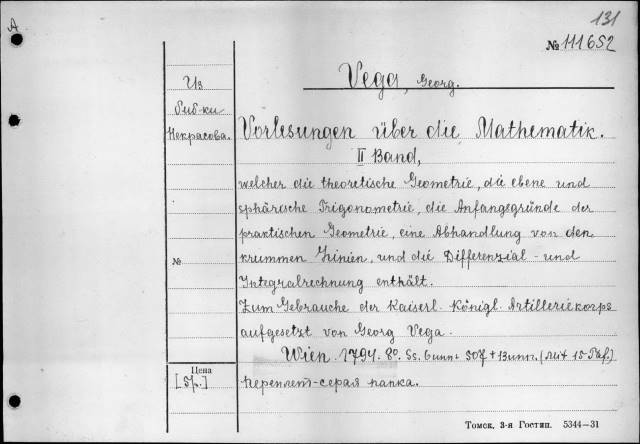 A
131
№ 111652
Vega, Georg.
Из
биб-ки
Некрасова.
Vorlesungen über die Mathematik.
II Band,
welcher die theoretische Geometrie, die ebene und
sphärische Trigonometrie, die Anfangsgründe der
praktischen Geometrie, eine Abhandlung von den
krummen Linien, und die Differenzial- und
№
Integralrechnung enthält.
Zum Gebrauche der Kaiserl. Königl. Artilleriekorps
aufgesetzt von Georg Vega.
Wien 1794. 8°. Ss. 6 unn + 507 + 13 unn. (mit 15 Taf.)
Цена
[5р.]
Переплет-серая папка.
Томск, 3-я Гостип. 5344—31